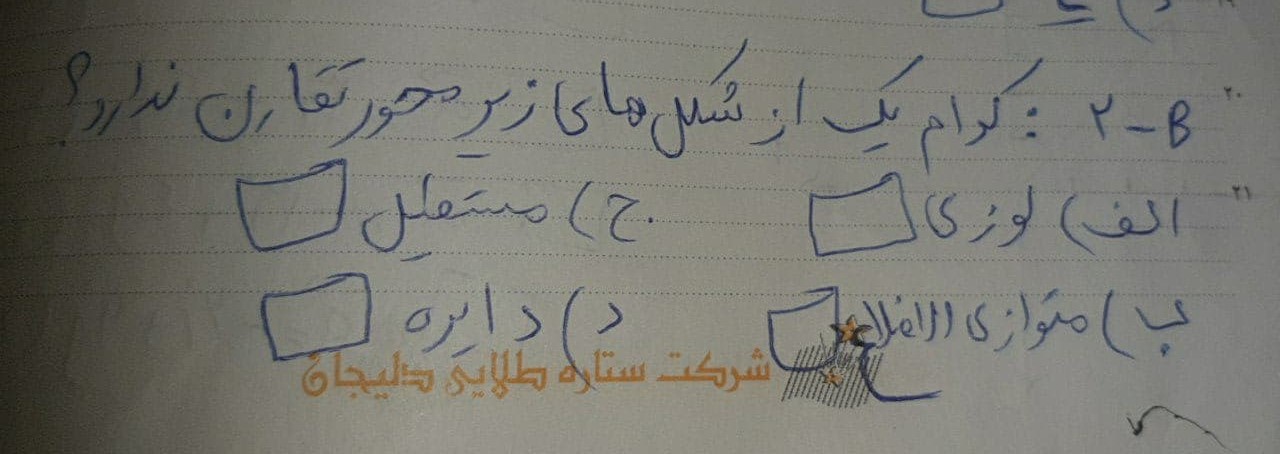 ۲۰
B-۲ : کدام یک از شکل های زیر محور تقارن ندارد؟
۲۱
الف) لوزی
ج) مستطیل
ب) متوازی الاضلاع
د) دایره
شرکت ستاره طلایی دلیجان